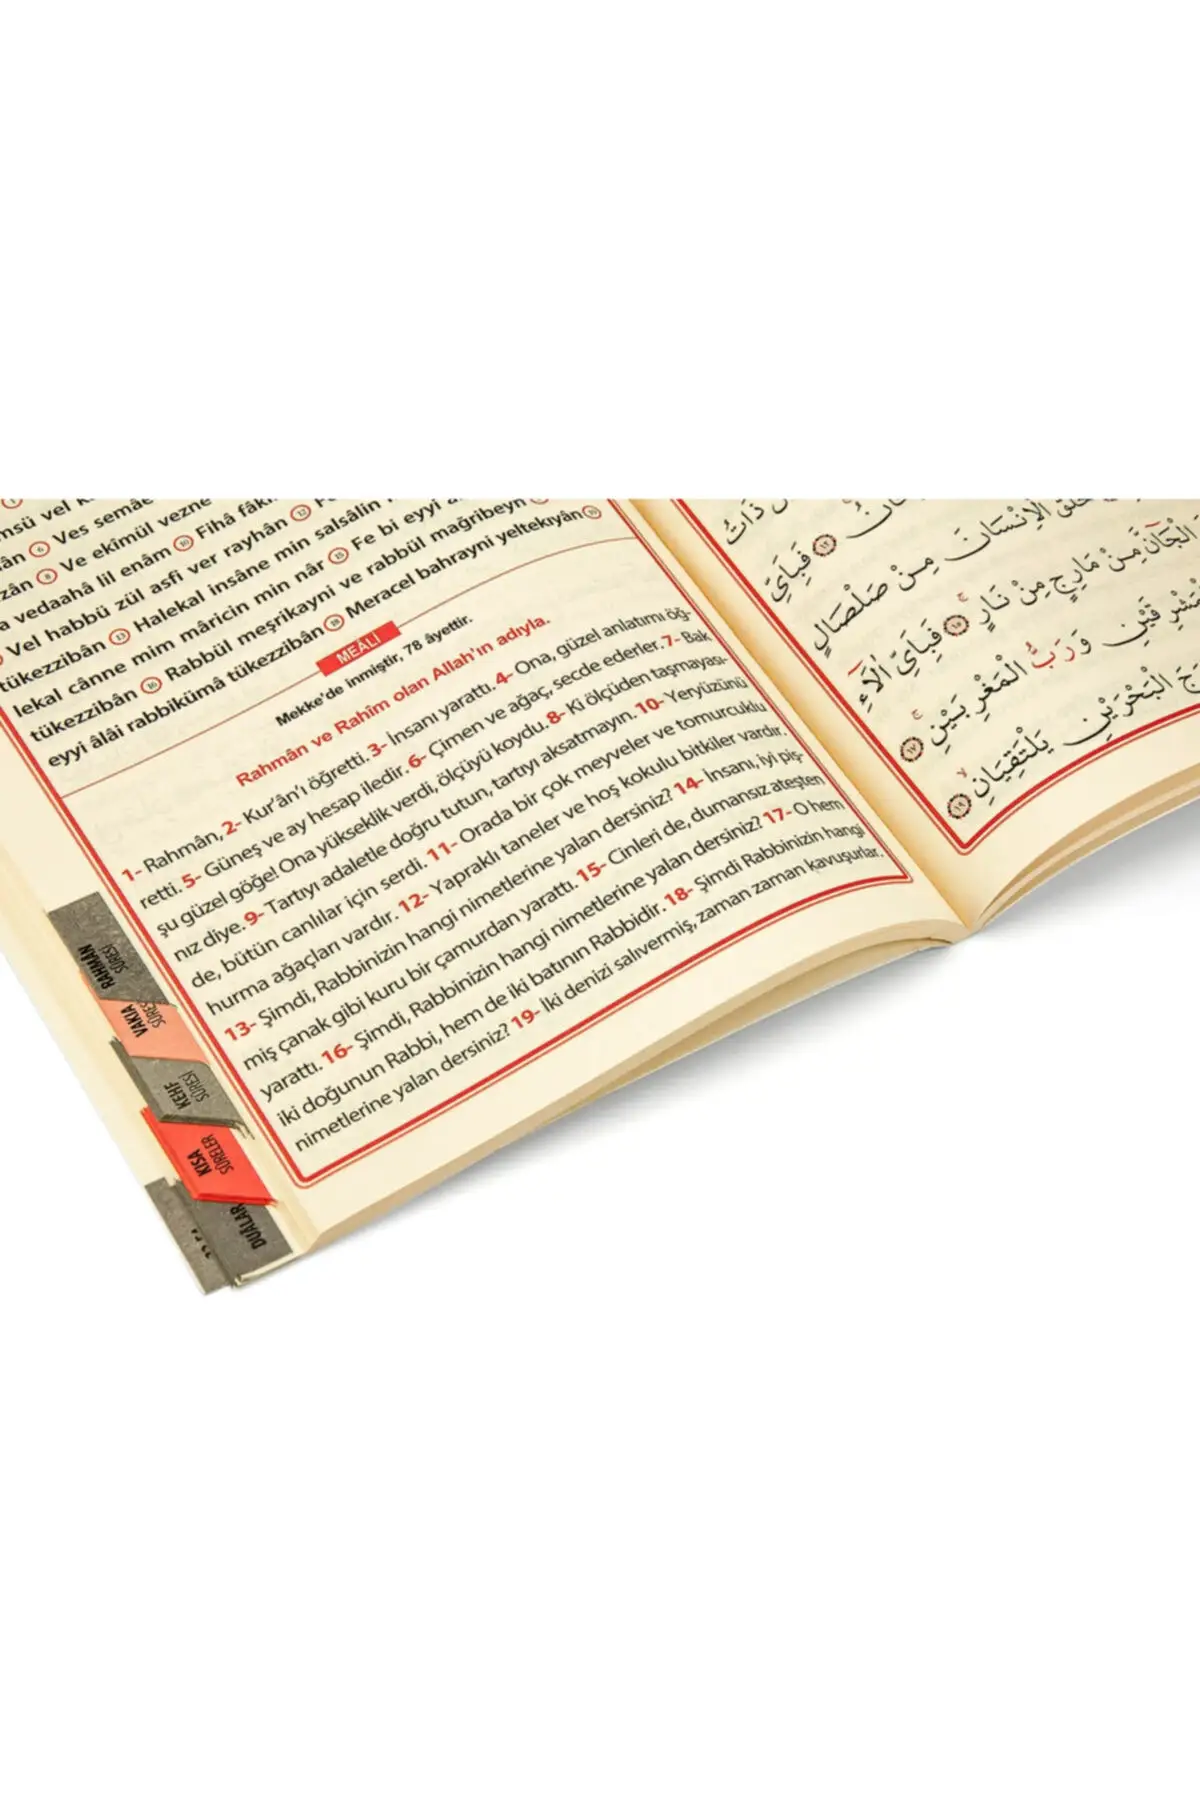 msü vel
Ves semâe
Ve ekîmül vezne
vedaahâ lil enâm 10 Fîhâ
Vel habbü zül asfi ver rayhân 12
tükezzibân 13 Halekal insâne min salsâlin
lekal cânne mim mâricin min nâr 15 Fe bi eyyi
tükezzibân 16 Rabbül meşrikayni ve rabbül mağribeyn
eyyi âlâi rabbikümâ tükezzibân 18 Meracel bahrayni yeltekıyân 19
MEÂLİ
Mekke'de inmiştir, 78 âyettir.
Rahmân ve Rahîm olan Allah'ın adıyla.
1- Rahmân, 2- Kur'ân'ı öğretti. 3- İnsanı yarattı. 4- Ona, güzel anlatımı öğ-
retti. 5- Güneş ve ay hesap iledir. 6- Çimen ve ağaç, secde ederler. 7- Bak
şu güzel göğe! Ona yükseklik verdi, ölçüyü koydu. 8- Ki ölçüden taşmayası-
nız diye. 9- Tartıyı adaletle doğru tutun, tartıyı aksatmayın. 10- Yeryüzünü
de, bütün canlılar için serdi. 11- Orada bir çok meyveler ve tomurcuklu
hurma ağaçları vardır. 12- Yapraklı taneler ve hoş kokulu bitkiler vardır.
13- Şimdi, Rabbinizin hangi nimetlerine yalan dersiniz? 14- İnsanı, iyi piş-
miş çanak gibi kuru bir çamurdan yarattı. 15- Cinleri de, dumansız ateşten
yarattı. 16- Şimdi, Rabbinizin hangi nimetlerine yalan dersiniz? 17- O hem
iki doğunun Rabbi, hem de iki batının Rabbidir. 18- Şimdi Rabbinizin hangi
nimetlerine yalan dersiniz? 19- İki denizi salıvermiş, zaman zaman kavuşurlar.
RAHMAN
SÛRESİ
VAKIA
SÛRESİ
KEHF
SÛRESİ
KISA
SÛRELER
DUÂLAR
ذَاتُ
فَبِاَيِّ
خَلَقَ الْاِنْسَانَ مِنْ صَلْصَالٍ
الْجَٓانَّ مِنْ مَارِجٍ مِنْ نَارٍۚ ﴿١٥﴾ فَبِاَيِّ اٰلَٓاءِ
وَرَبُّ الْمَغْرِبَيْنِۚ ﴿١٧﴾
الْبَحْرَيْنِ يَلْتَقِيَانِۙ ﴿١٩﴾